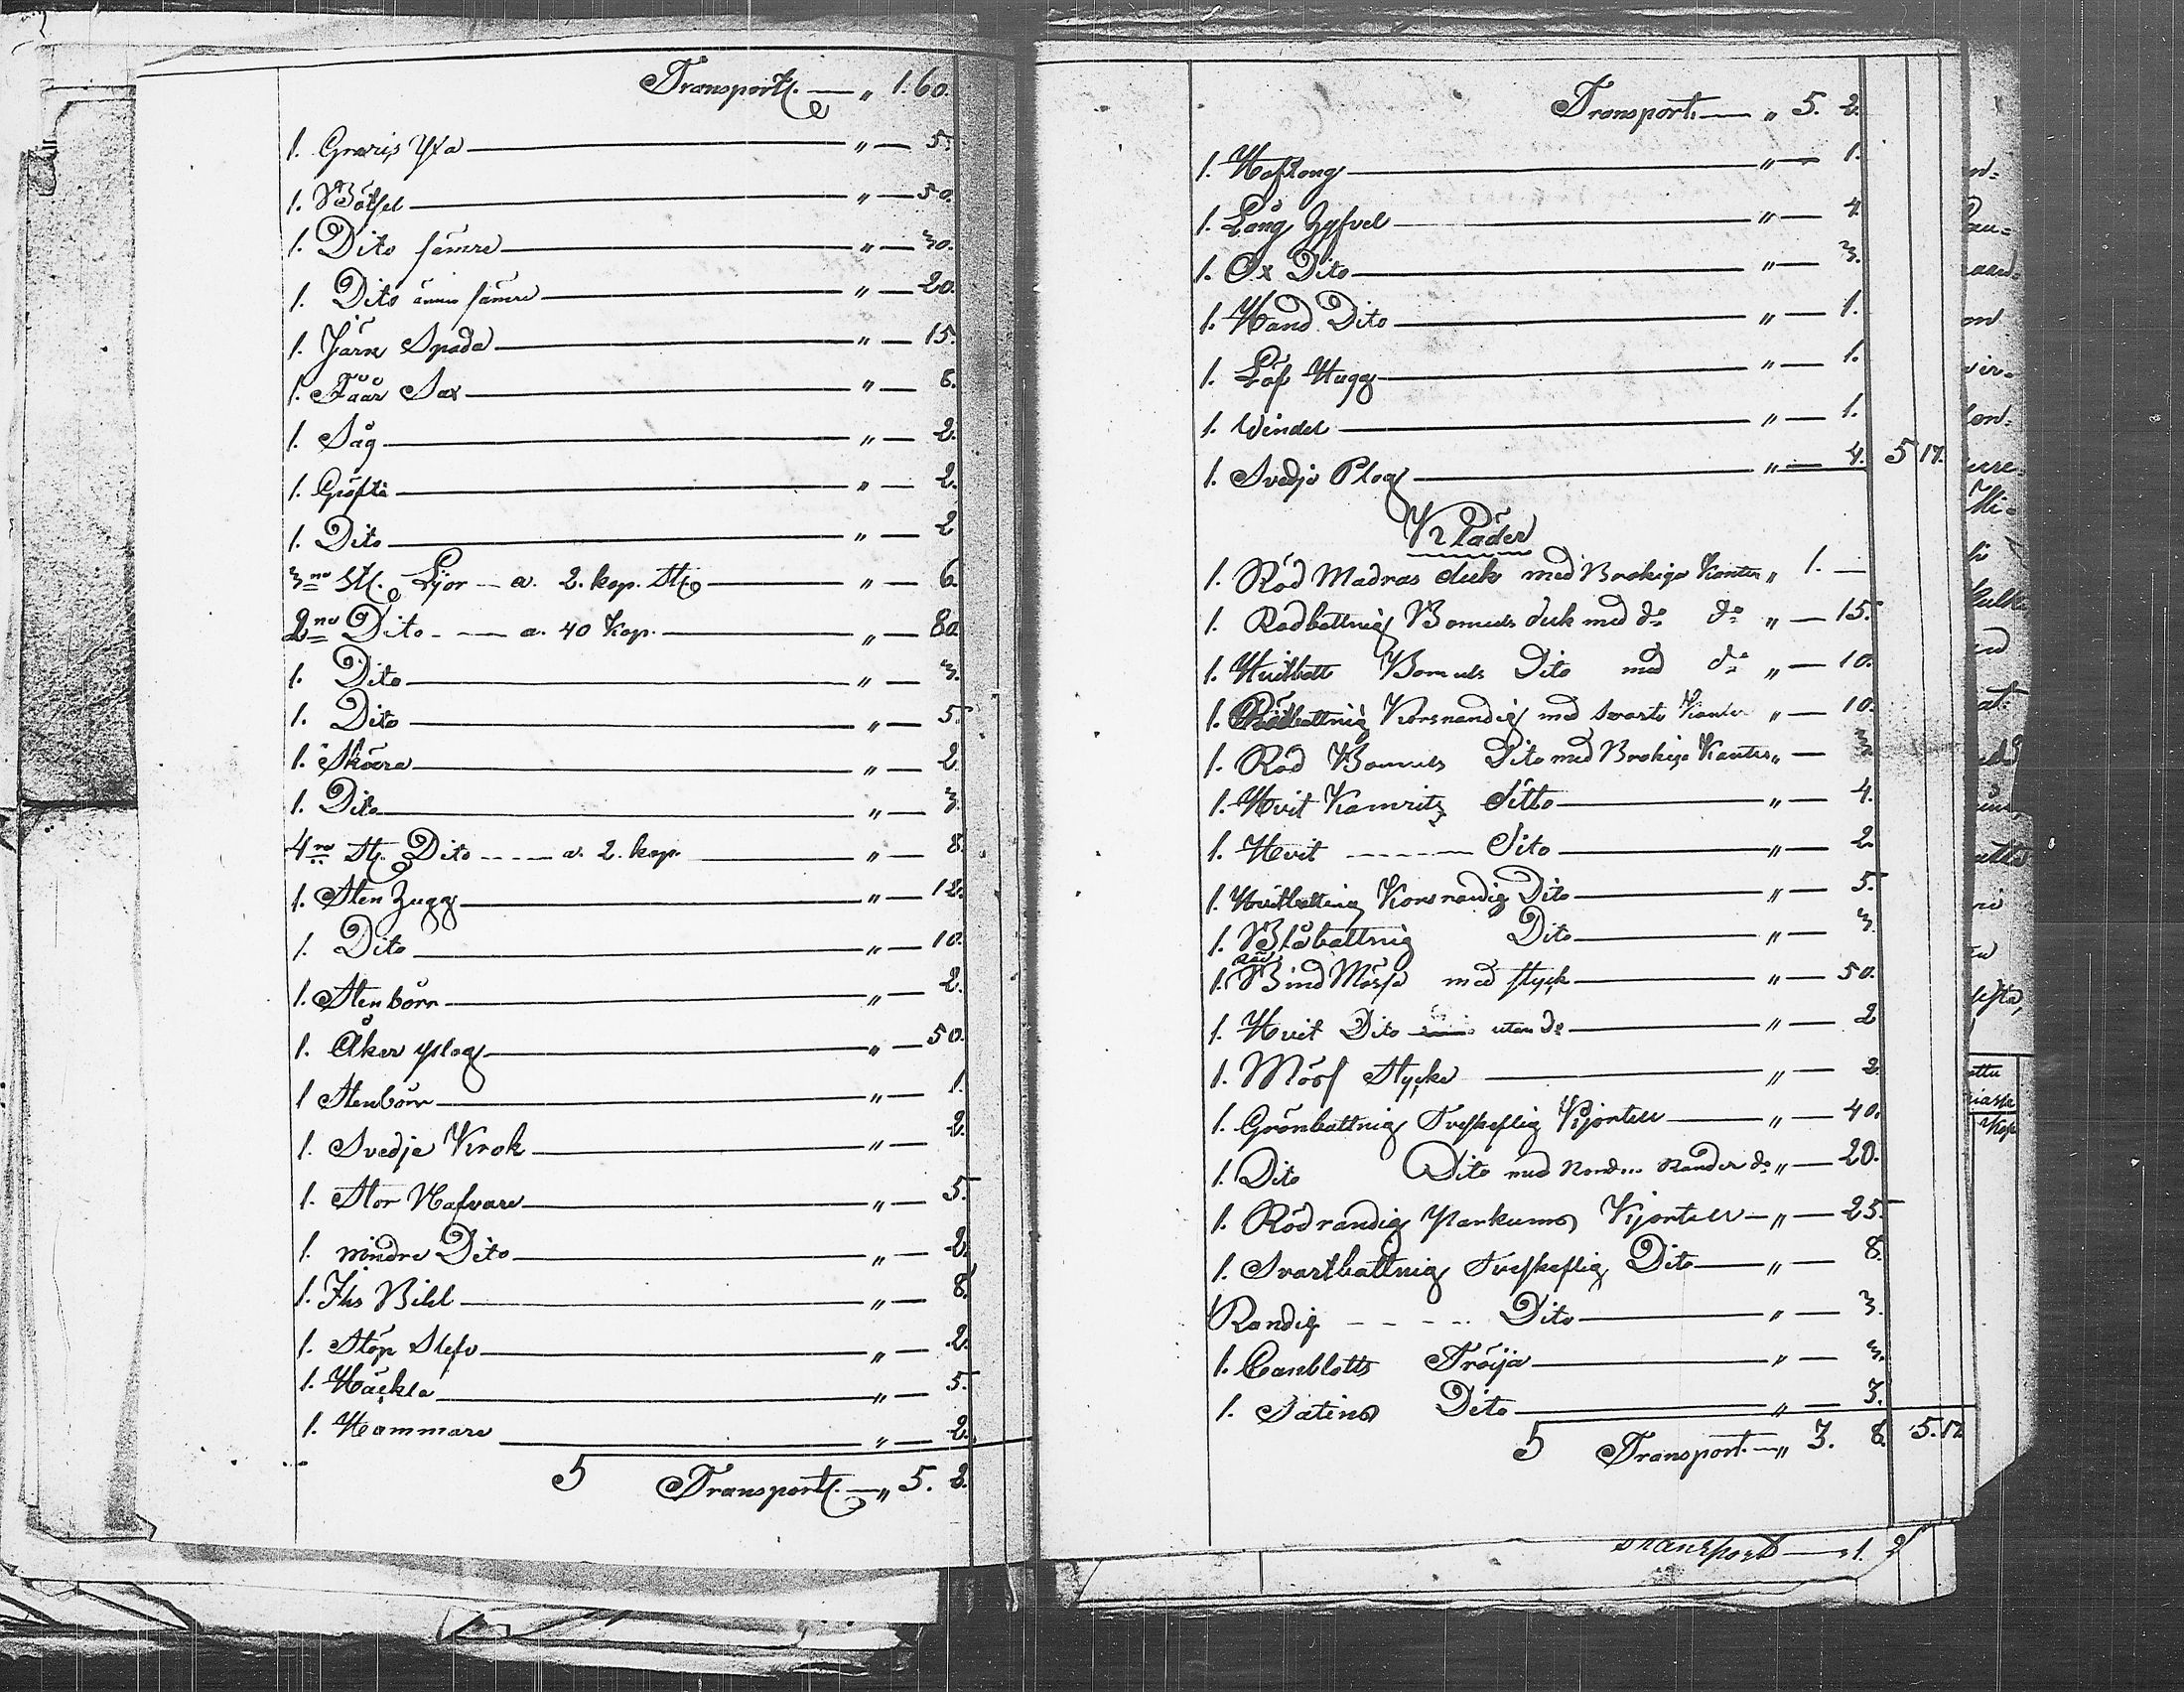 Transport " 1. 60.
1. Yxa " 5.
1. Bötsel " 50.
1. Dito sämre " 30.
1. Dito ännu sämre " 20.
1. Järn Spada " 15.
1. Fåår Sax " 8.
1. Såg " 2.
1. Gröfte " 2.
1. Dito " 2
3ne St. Ljor a. 2. kop. St " 6.
2ne Dito a. 40 Kop. " 80
1. Dito " 3.
1. Dito " 5
1. Skäera " 2
1. Dito " 3.
4ra St. Dito a. 2. kop. " 8.
1. Sten Zugg " 12.
1. Dito " 10.
1. Stenbörr " 2.
1. Åker plog " 50.
1 Stenbörr " 1.
1. Svedje Krok " 2.
1. Stor Nafvare " 5.
1. mindre Dito " 2.
1. Iis Bihl " 8.
1. Stöp Slefv " 2.
1. Häckla " 5.
1. Hammare " 2.
5 Transport " 5. 2.
Transport. " 5. 2.
1. Haftong " 1.
1. Lång Hyfvel " 4.
1. Ox Dito " 3.
1. Hand Dito " 1.
1. Löf Hugg " 1.
1. Windel " 1.
1. Svedje Plog " 4. 5 17.
Kläder
1. Röd Madras duk med Brokiga Kanter " 1. —
1. Rödbattnig Bomuls duk med do do " 15.
1. Hvitbatt Bomuls Dito med do " 10.
1. Rödbattnig Korsrandig med Svarta Kanter " 10.
1. Röd Bomuls Dito med Brokiga Kanter " 3.
1. Hvit Kamritz ditto " 4.
1. Hvit Dito " 2.
1. Hvitbattnig Korsrandig Dito " 5.
1. Blåbattnig Dito " 3
1. Bind Mössa med styck " 50.
1. Hvit Dito utan do " 2
1. Möss Stycke " 2.
1. Grönbattnig Tveskeftig Kjortell " 40.
1. Dito Dito med Rander do " 20.
1. Rödrandig Parkums Kjortell " 25.
1. Svartbattnig Tveskeftig Dito " 8.
1 Randig Dito " 3.
1. Camblotts Tröija " 3.
1. Satins Dito " 3.
5 Transport " 3. 8. 5. 17
Transport 1. 2